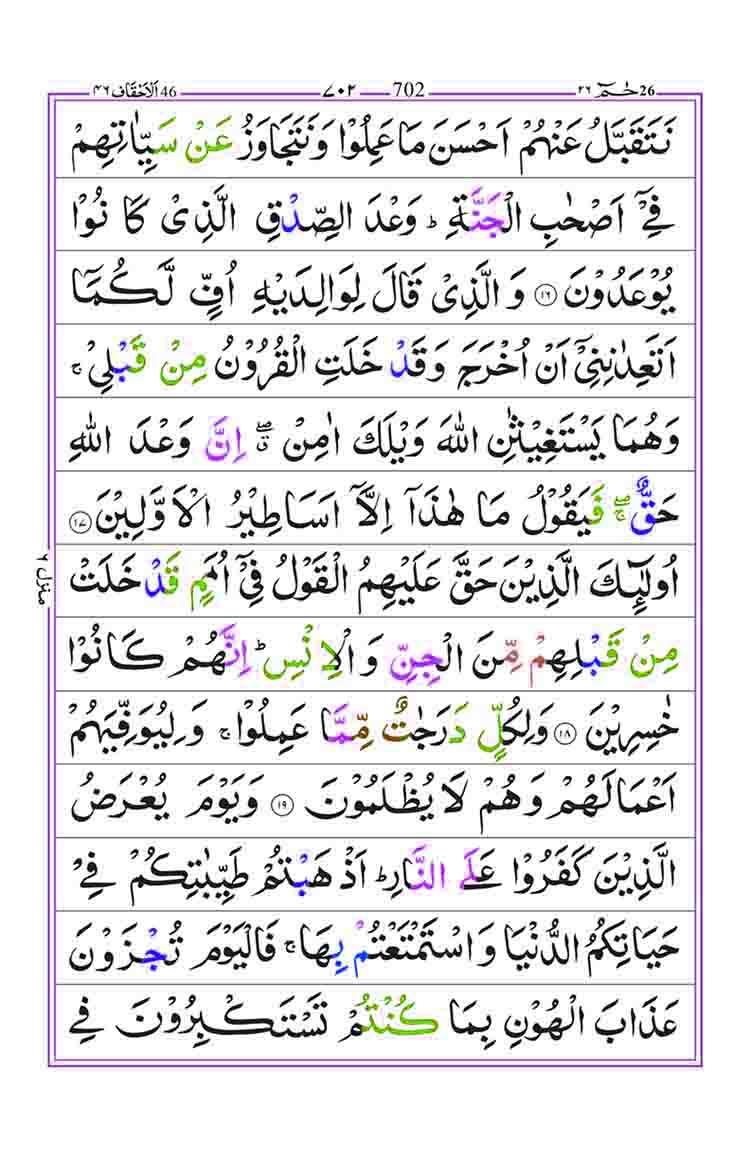 46 اَلْاَحْقَاف ۴۶ 702 ۷۰۲ 26 حٰـمٓ ۲۶
نَتَقَبَّلُ عَنْهُمْ اَحْسَنَ مَا عَمِلُوْا وَنَتَجَاوَزُ عَنْ سَيِّاٰتِهِمْ
فِیْۤ اَصْحٰبِ الْجَنَّةِ ؕ وَعْدَ الصِّدْقِ الَّذِیْ كَانُوْا
يُوْعَدُوْنَ ﴿۱۶﴾ وَالَّذِیْ قَالَ لِوَالِدَيْهِ اُفٍّ لَّكُمَاۤ
اَتَعِدٰنِنِیْۤ اَنْ اُخْرَجَ وَقَدْ خَلَتِ الْقُرُوْنُ مِنْ قَبْلِیْ ۚ
وَهُمَا يَسْتَغِيْثٰنِ اللّٰهَ وَيْلَكَ اٰمِنْ ۖۗ اِنَّ وَعْدَ اللّٰهِ
حَقٌّ ۖۚ فَيَقُوْلُ مَا هٰذَاۤ اِلَّاۤ اَسَاطِيْرُ الْاَوَّلِيْنَ ﴿۱۷﴾
اُولٰٓئِكَ الَّذِيْنَ حَقَّ عَلَيْهِمُ الْقَوْلُ فِیْۤ اُمَمٍ قَدْ خَلَتْ
مِنْ قَبْلِهِمْ مِّنَ الْجِنِّ وَالْاِنْسِ ؕ اِنَّهُمْ كَانُوْا
خٰسِرِيْنَ ﴿۱۸﴾ وَلِكُلٍّ دَرَجٰتٌ مِّمَّا عَمِلُوْا ۚ وَلِيُوَفِّيَهُمْ
اَعْمَالَهُمْ وَهُمْ لَا يُظْلَمُوْنَ ﴿۱۹﴾ وَيَوْمَ يُعْرَضُ
الَّذِيْنَ كَفَرُوْا عَلَى النَّارِ ؕ اَذْهَبْتُمْ طَيِّبٰتِكُمْ فِیْ
حَيَاتِكُمُ الدُّنْيَا وَاسْتَمْتَعْتُمْ بِهَا ۚ فَالْيَوْمَ تُجْزَوْنَ
عَذَابَ الْهُوْنِ بِمَا كُنْتُمْ تَسْتَكْبِرُوْنَ فِی
منزل ۶